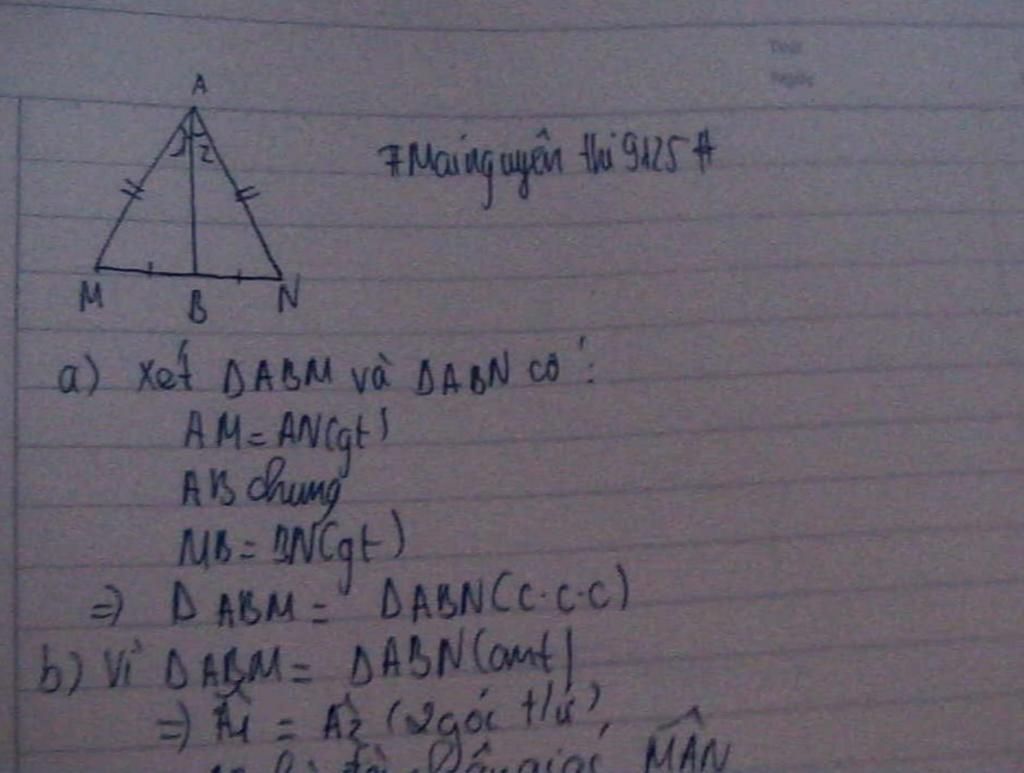 A
2
#Mainguyên thi9125#
M B N
a) Xét ΔABM và ΔABN có:
AM = AN(gt)
AB chung
MB = BN(gt)
=) ΔABM = ΔABN(c.c.c)
b) Vì ΔABM = ΔABN(cmt)
=) Â1 = Â2 (2góc t/ứ)
giác MÂN